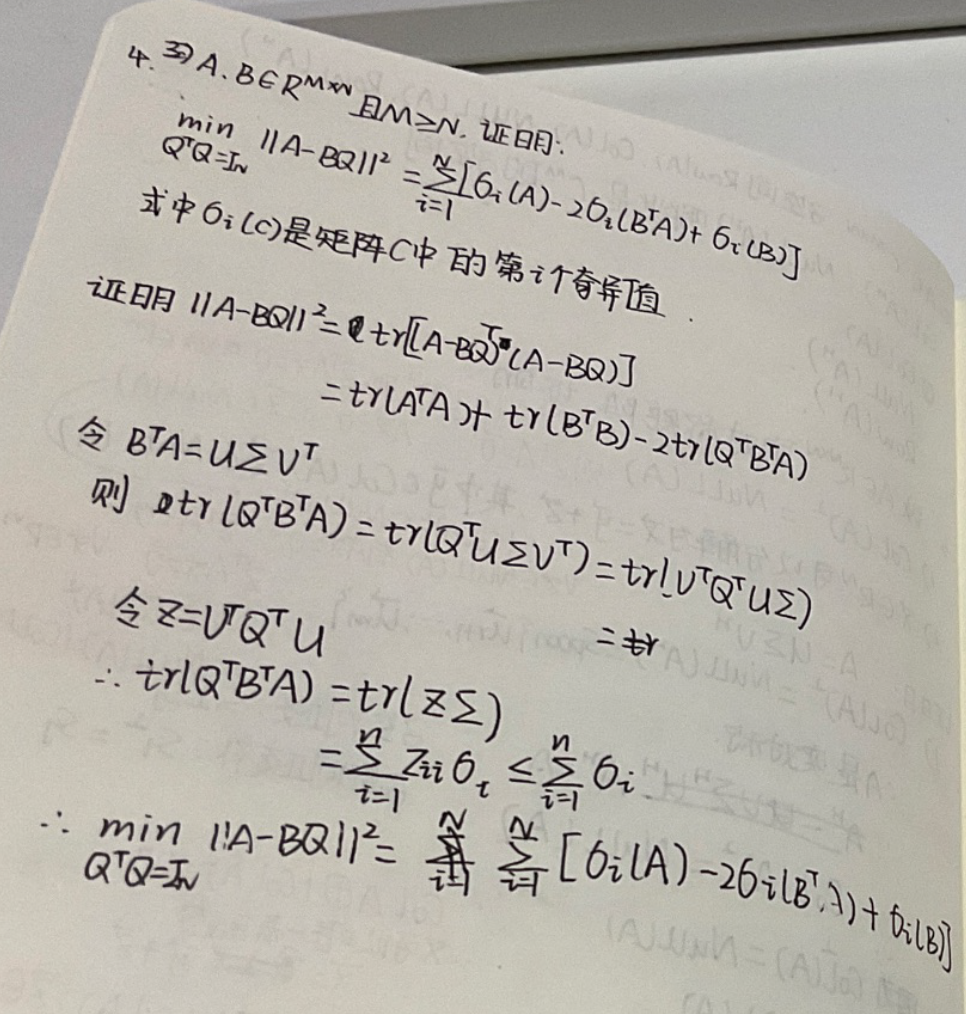 4. 习 A、B∈R^{M×N} 且M≥N. 证明:
min_{Q^TQ=I_N} ||A-BQ||² = ∑_{i=1}^{N}[σ_i(A)-2σ_i(B^TA)+σ_i(B)]
式中σ_i(C)是矩阵C中的第i个奇异值.
证明 ||A-BQ||² = tr[(A-BQ)^T(A-BQ)]
= tr(A^TA)+tr(B^TB)-2tr(Q^TB^TA)
令 B^TA=UΣV^T
则 tr(Q^TB^TA)=tr(Q^TUΣV^T)=tr(V^TQ^TUΣ)
令 Z=V^TQ^TU
∴ tr(Q^TB^TA)=tr(ZΣ)
=∑_{i=1}^{n} Z_{ii}σ_i ≤ ∑_{i=1}^{n} σ_i
∴ min_{Q^TQ=I_N} ||A-BQ||² = ∑_{i=1}^{N} [σ_i(A)-2σ_i(B^TA)+σ_i(B)]